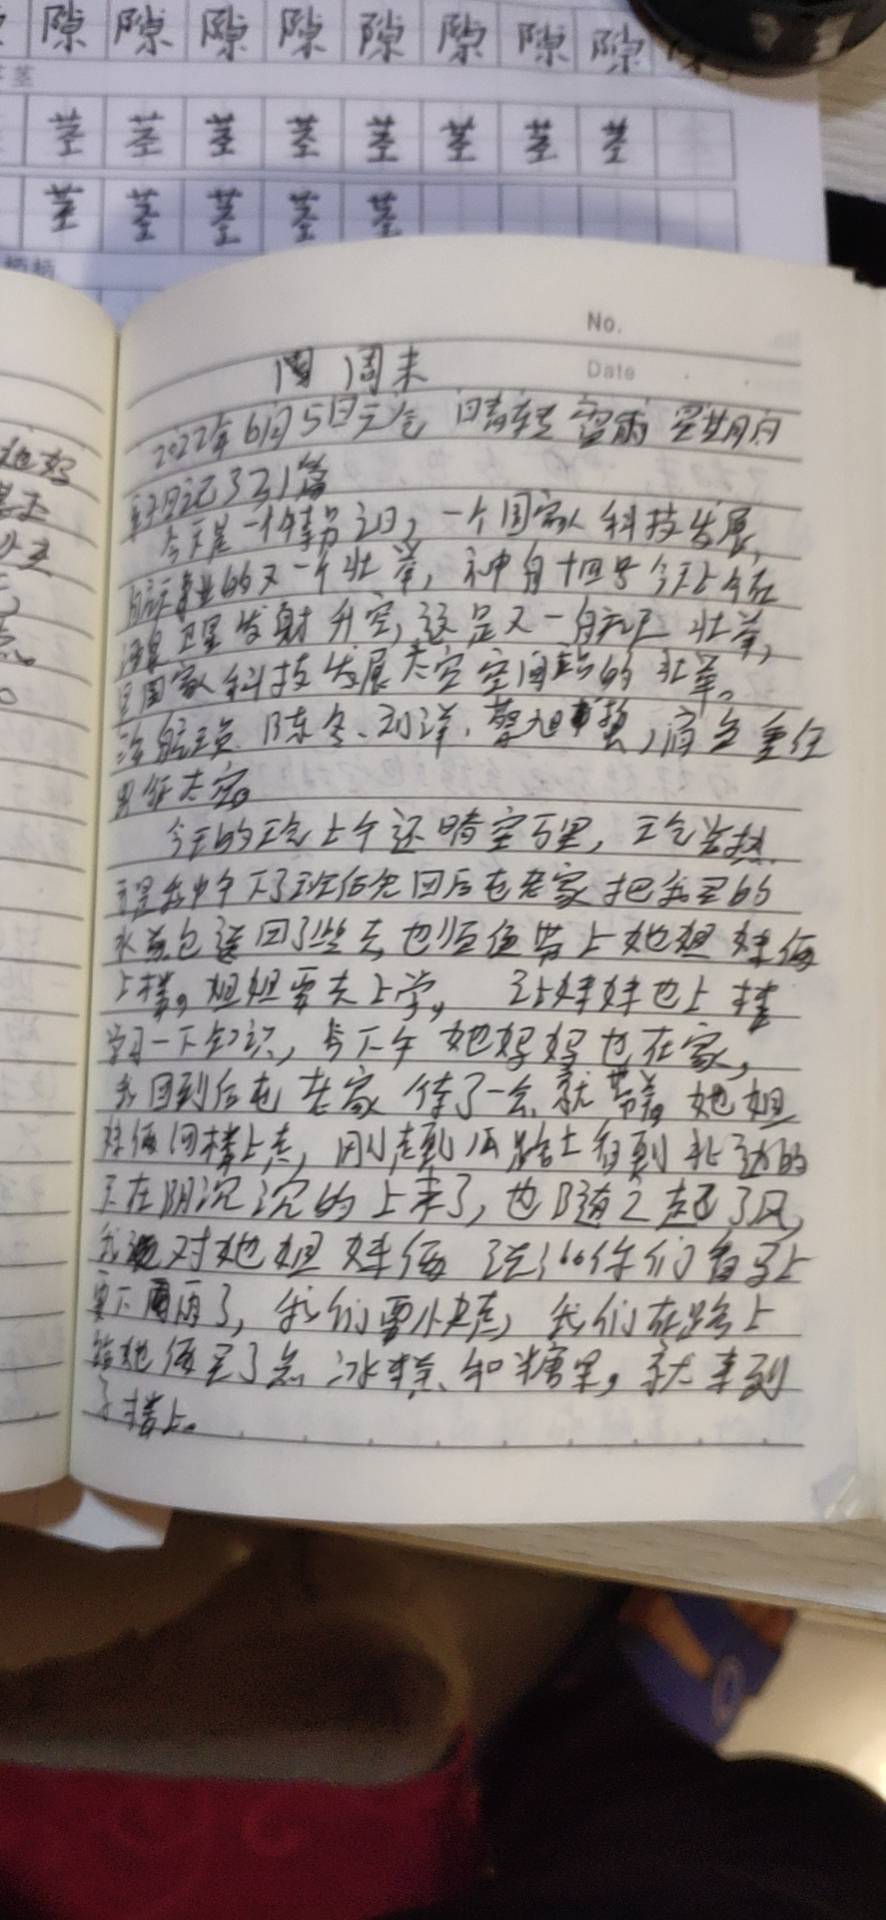 隙 隙 隙 隙 隙 隙 隙 隙
茎
茎 茎 茎 茎 茎 茎 茎 茎
茎 茎 茎 茎 茎
No.
周末
Date
2022年6月5日天气 晴转雷雨 星期日
日记 篇
今天是一个特 之日，一个国家 科技发展，
事业的又一个壮举，神舟十四号今天上午在
酒泉卫星发射升空，这是又一 壮举，
是国家科技发展太空空间站的壮举。
航 员 陈冬、刘洋、蔡旭哲，肩负重任
出征太空。
今天的天气上午还晴空万里，天气炎热
可是我中午下了班 先回后屯老家把我买的
水 包送回了些去，也顺便带上她姐妹俩
上楼。姐姐要去上学， 妹妹也上楼
学习一下知识， 下午她妈妈也在家，
我回到后屯老家待了一会，就带着她姐
妹俩回楼上走，刚走到 路上看到北边的
天在阴沉沉的上来了，也随之起了风，
我 对她姐妹俩说：“你们看马上
要下雨了，我们要 走，我们在路上
给她俩买了点冰糕、和糖果，就来到
了楼上。